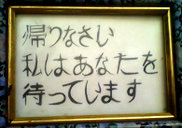 帰りなさい
私はあなたを
待っています